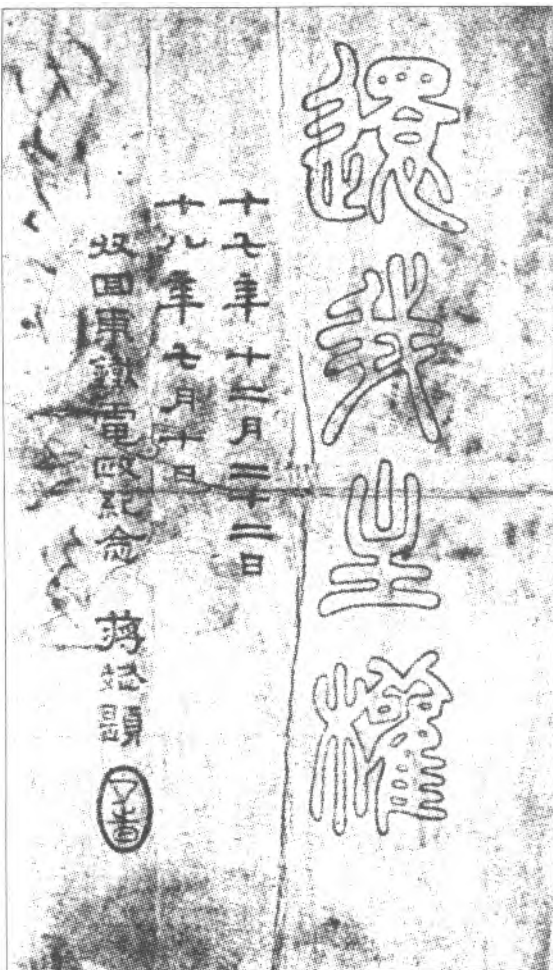 還我主權
十七年十二月二十二日
十八年七月十日
收回東鐵電政紀念 蔣 題